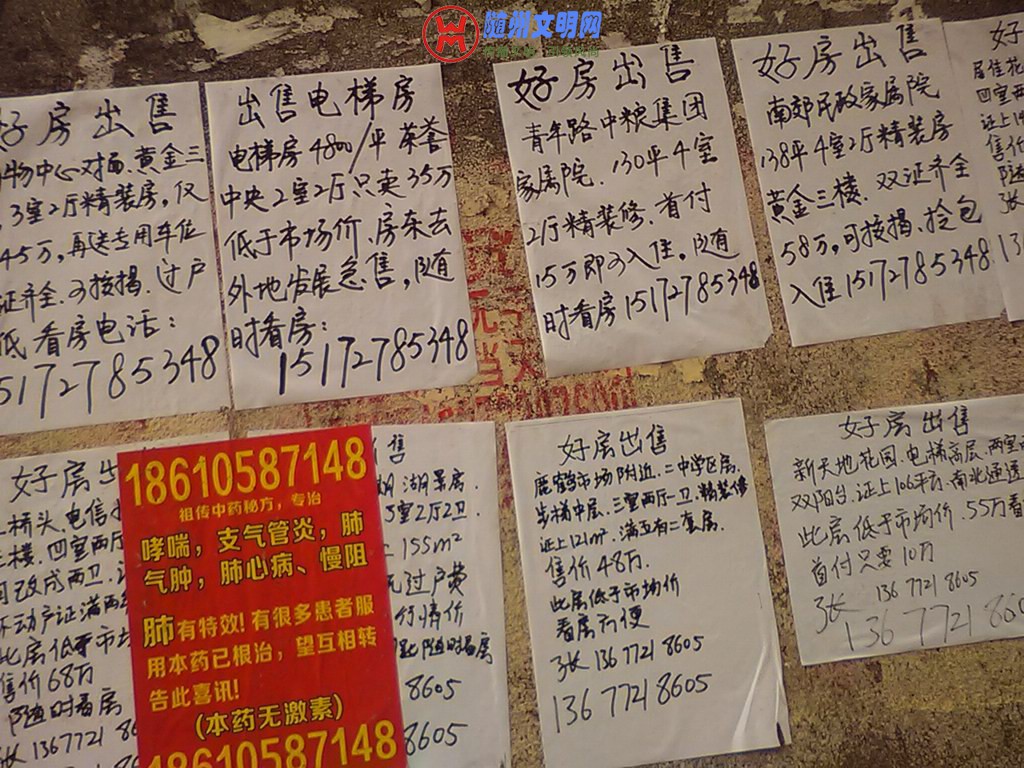 随州文明网
好房出售
物中心对面.黄金三
.3室2厅精装房,仅
45万,再送专用车位
证齐全.可按揭.过户
低 看房电话:
5172785348
出售电梯房
电梯房4800/平 荣誉
中央2室2厅只卖35万
低于市场价.房东去
外地发展急售,随
时看房:
15172785348
好房出售
青年路中粮集团
家属院.130平4室
2厅精装修.首付
15万即可入住.随
时看房15172785348
好房出售
南郊民政家属院
138平4室2厅精装房
黄金三楼.双证齐全
58万,可按揭、拎包
入住15172785348
好
居佳花
四室两
证上1
售价
随
张
13
好房出
桥头.电信
楼.四室两厅
可改成两卫.
不动产证满两
此房低于市场
售价68万
随时看房
张 1367721 8
18610587148
祖传中药秘方,专治
哮喘,支气管炎,肺
气肿,肺心病、慢阻
肺有特效!有很多患者服
用本药已根治,望互相转
告此喜讯!
(本药无激素)
18610587148
售
湖景房.
3室2厅2卫.
155m²
无过户费
行情价
随时看房
8605
8605
好房出售
鹿鹤市场附近.二中学区房.
步梯中层.三室两厅一卫.精装修
证上121m².满五有二套房.
售价48万.
此房低于市场价
看房方便
张 1367721 8605
1367721 8605
好房出售
新天地花园.电梯高层.两室
双阳台.证上106平方.南北通透
此房低于市场价.55万看
首付只要10万
张 1367721 8605
1367721 860